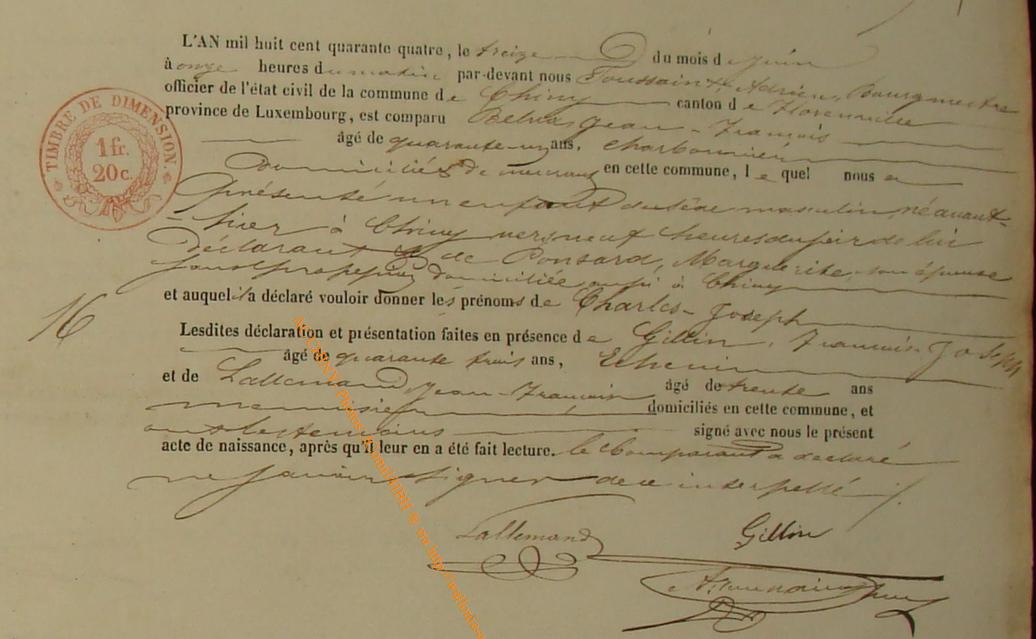 L'AN mil huit cent quarante quatre, le treize du mois de juin
à onze heures du matin par-devant nous Toussaint, Adrien, Bourgmestre
officier de l'état civil de la commune de Chiny canton de Florenville
province de Luxembourg, est comparu Jean-François
âgé de quarante-un ans, charbonnier
Domiciliés en cette commune, lequel nous a
présenté un enfant du sexe masculin, né avant-
-hier à Chiny vers neuf heures du soir de lui
déclarant & de Ponsard, Marguerite, son épouse
sans profession domiciliée aussi à Chiny
et auquel il a déclaré vouloir donner les prénoms de Charles-Joseph
16
Lesdites déclaration et présentation faites en présence de Gillin, François-Joseph
âgé de quarante trois ans, Echevin
et de Lallemand, Jean-François âgé de trente ans
menuisier domiciliés en cette commune, et
ont les témoins signé avec nous le présent
acte de naissance, après qu'il leur en a été fait lecture. le Comparant a déclaré
ne savoir signer de ce interpellé ./.
Lallemand Gillin
TIMBRE DE DIMENSION.
1 fr.
20 c.